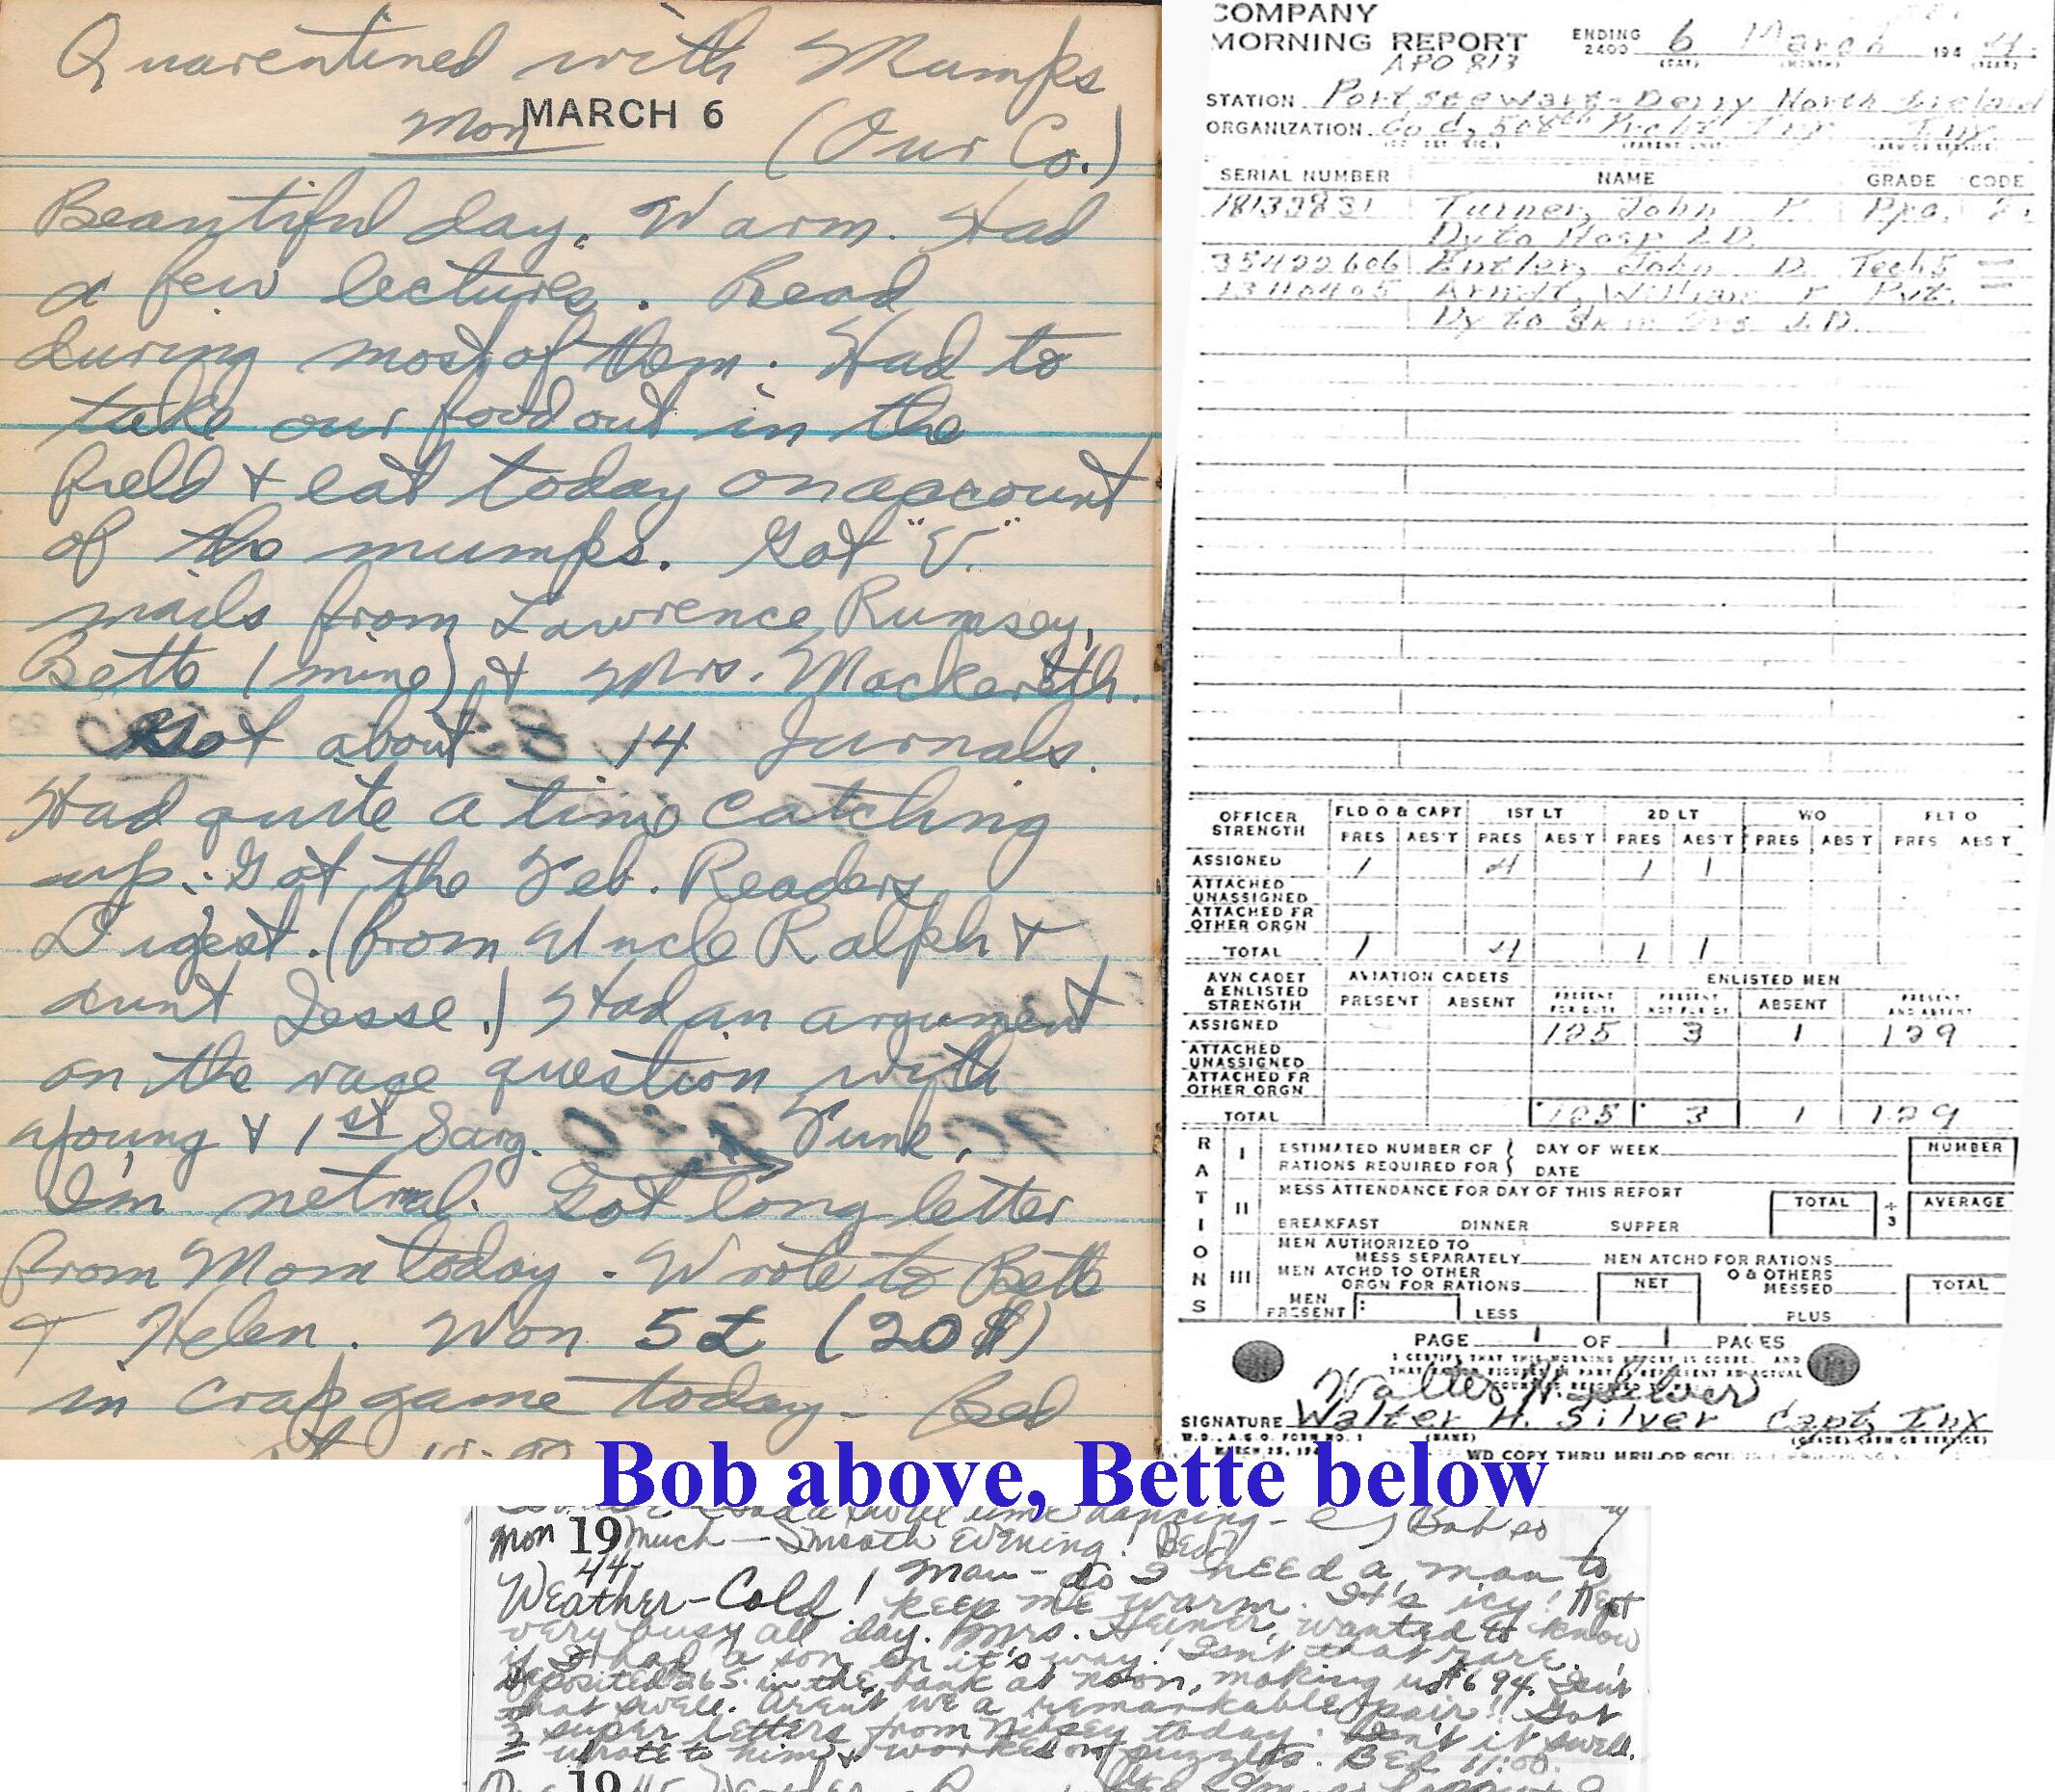 Quarentined with Mumps
Mon MARCH 6 (Our Co.)
Beautiful day. Warm. Had
a few lectures. Read
during most of them. Had to
take our food out in the
field & eat today on account
of the mumps. Got "V"
mails from Lawrence Rumsey,
Bette (mine) & Mrs. Mackereth.
Got about 14 Jurnals.
Had quite a time catching
up. Got the Feb. Readers
Digest. (from Uncle Ralph &
aunt Jesse.) Had an argument
on the race question with
Young & 1st Sarg. Funk.
I'm netral. Got long letter
from Mom today. Wrote to Bette
& Helen. Won 5£ (20$)
in crap game today. Bed
COMPANY
MORNING REPORT ENDING 2400 6 March 194 4
APO 813
(DAY) (MONTH) (YEAR)
STATION Portstewart-Derry North Ireland
ORGANIZATION Co d, 508th Prcht Inf Inf
SERIAL NUMBER NAME GRADE CODE
Turner, John
Dy to Hosp LD
35422606 John D Tech5
Arndt, William Pvt.
Dy to
OFFICER STRENGTH FLD O & CAPT 1ST LT 2D LT WO FLT O
PRES ABS'T PRES ABS'T PRES ABS'T PRES ABS'T PRES ABS'T
ASSIGNED 1 4 1 1
ATTACHED UNASSIGNED
ATTACHED FR OTHER ORGN
TOTAL 1 4 1 1
AVN CADET & ENLISTED STRENGTH AVIATION CADETS ENLISTED MEN
PRESENT ABSENT PRESENT FOR DUTY PRESENT NOT FOR DY ABSENT PRESENT AND ABSENT
ASSIGNED 125 3 1 129
ATTACHED UNASSIGNED
ATTACHED FR OTHER ORGN
TOTAL 125 3 1 129
RATIONS
I ESTIMATED NUMBER OF RATIONS REQUIRED FOR DAY OF WEEK DATE NUMBER
II MESS ATTENDANCE FOR DAY OF THIS REPORT TOTAL ÷ 3 AVERAGE
BREAKFAST DINNER SUPPER
III MEN AUTHORIZED TO MESS SEPARATELY MEN ATCHD FOR RATIONS
MEN ATCHD TO OTHER ORGN FOR RATIONS NET O & OTHERS MESSED TOTAL
MEN PRESENT LESS PLUS
PAGE 1 OF 1 PAGES
I CERTIFY THAT THIS MORNING REPORT IS
Walter H. Silver
SIGNATURE Walter H. Silver Capt, Inf
W.D., A.G.O. FORM NO. 1
WD COPY THRU MRU OR
Bob above, Bette below
time dancing - Bob so
Mon 19 much - Smooth Evening! Bed
44
Weather-Cold! Man - do I need a man to
keep me warm. It's icy! Kept
very busy all day. Mrs. Heiner, wanted to know
if I had a son on it's way! Isn't that rare.
Deposited 265. in the bank at noon, making us $694. Isn't
that swell. Aren't we a remarkable pair!! Got
2 super letters from today. Isn't it swell.
wrote to him & worked on puzzles. Bed 11:00.
19